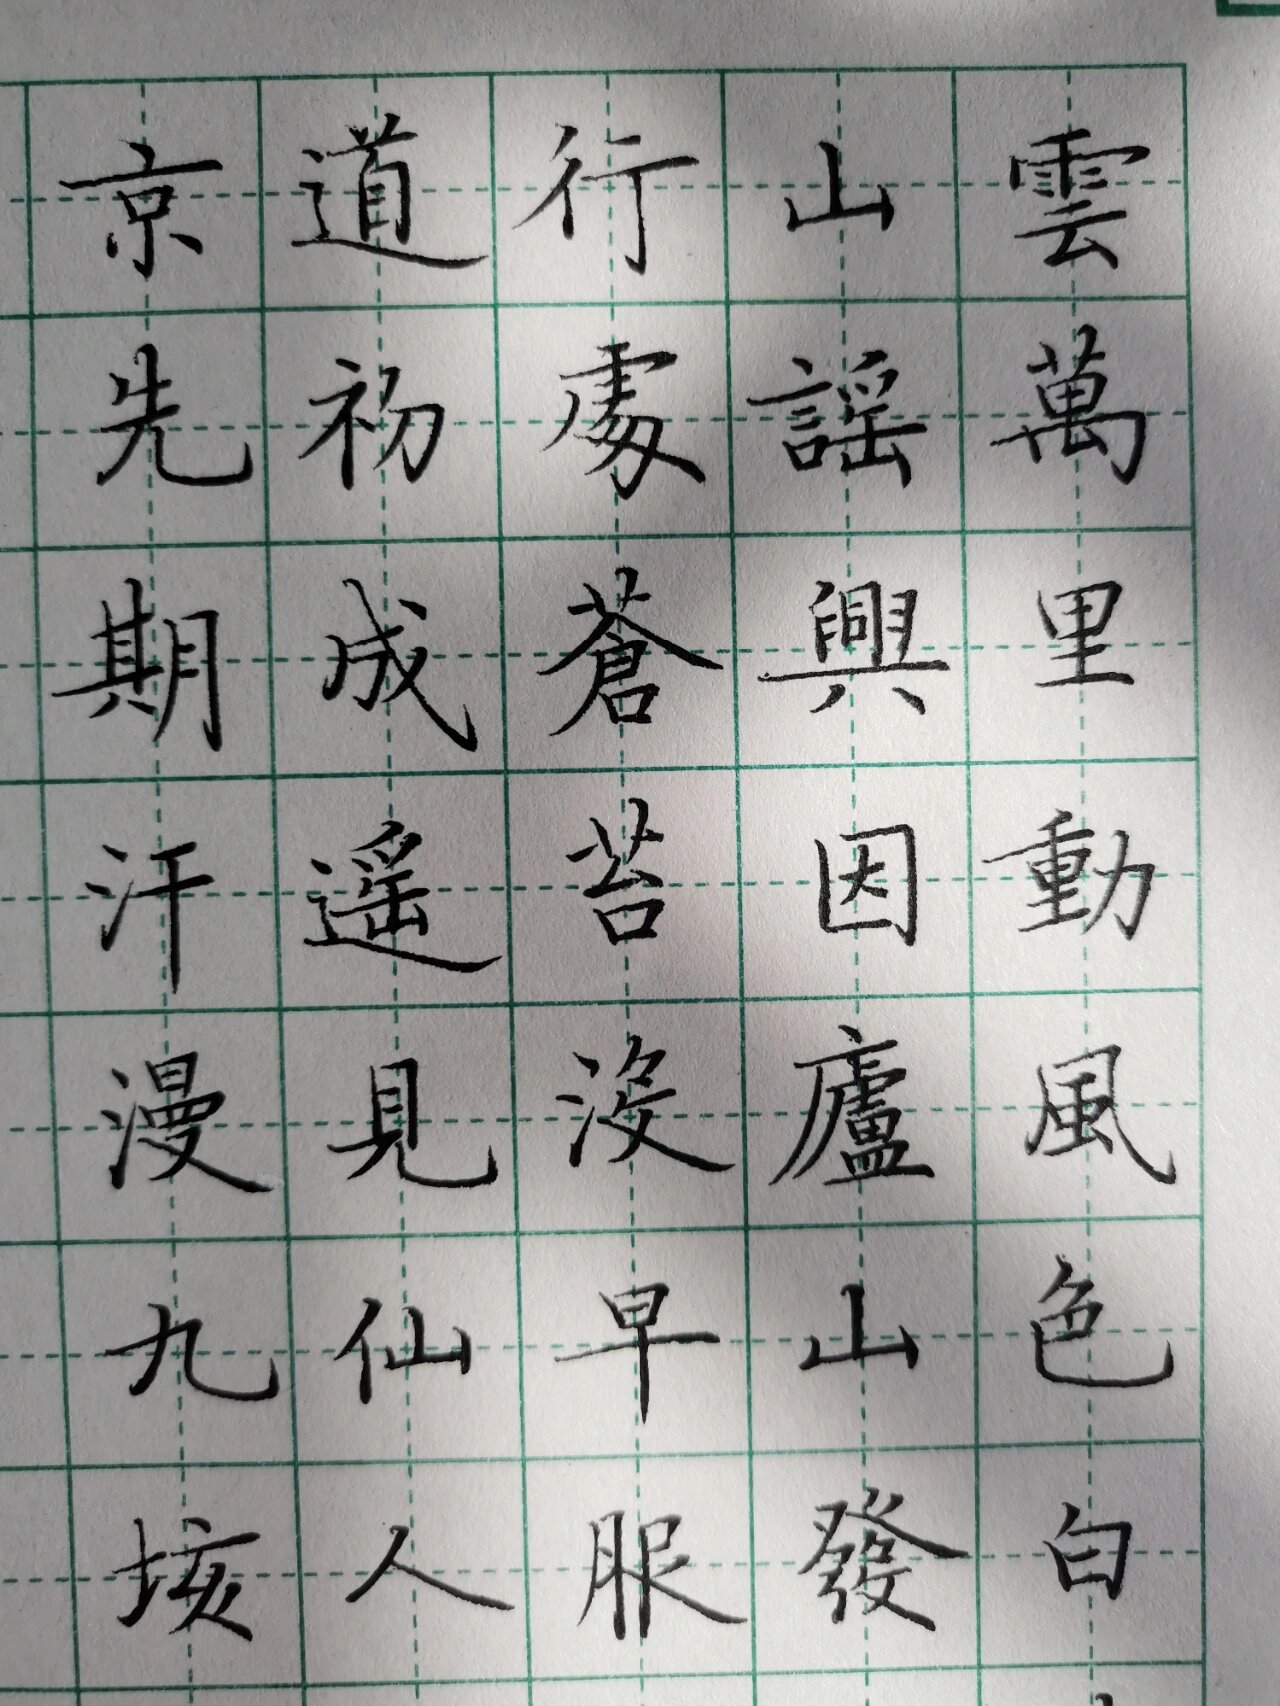 雲萬里動風色白
山謡興因廬山發
行處蒼苔没早服
道初成遥見仙人
京先期汗漫九垓